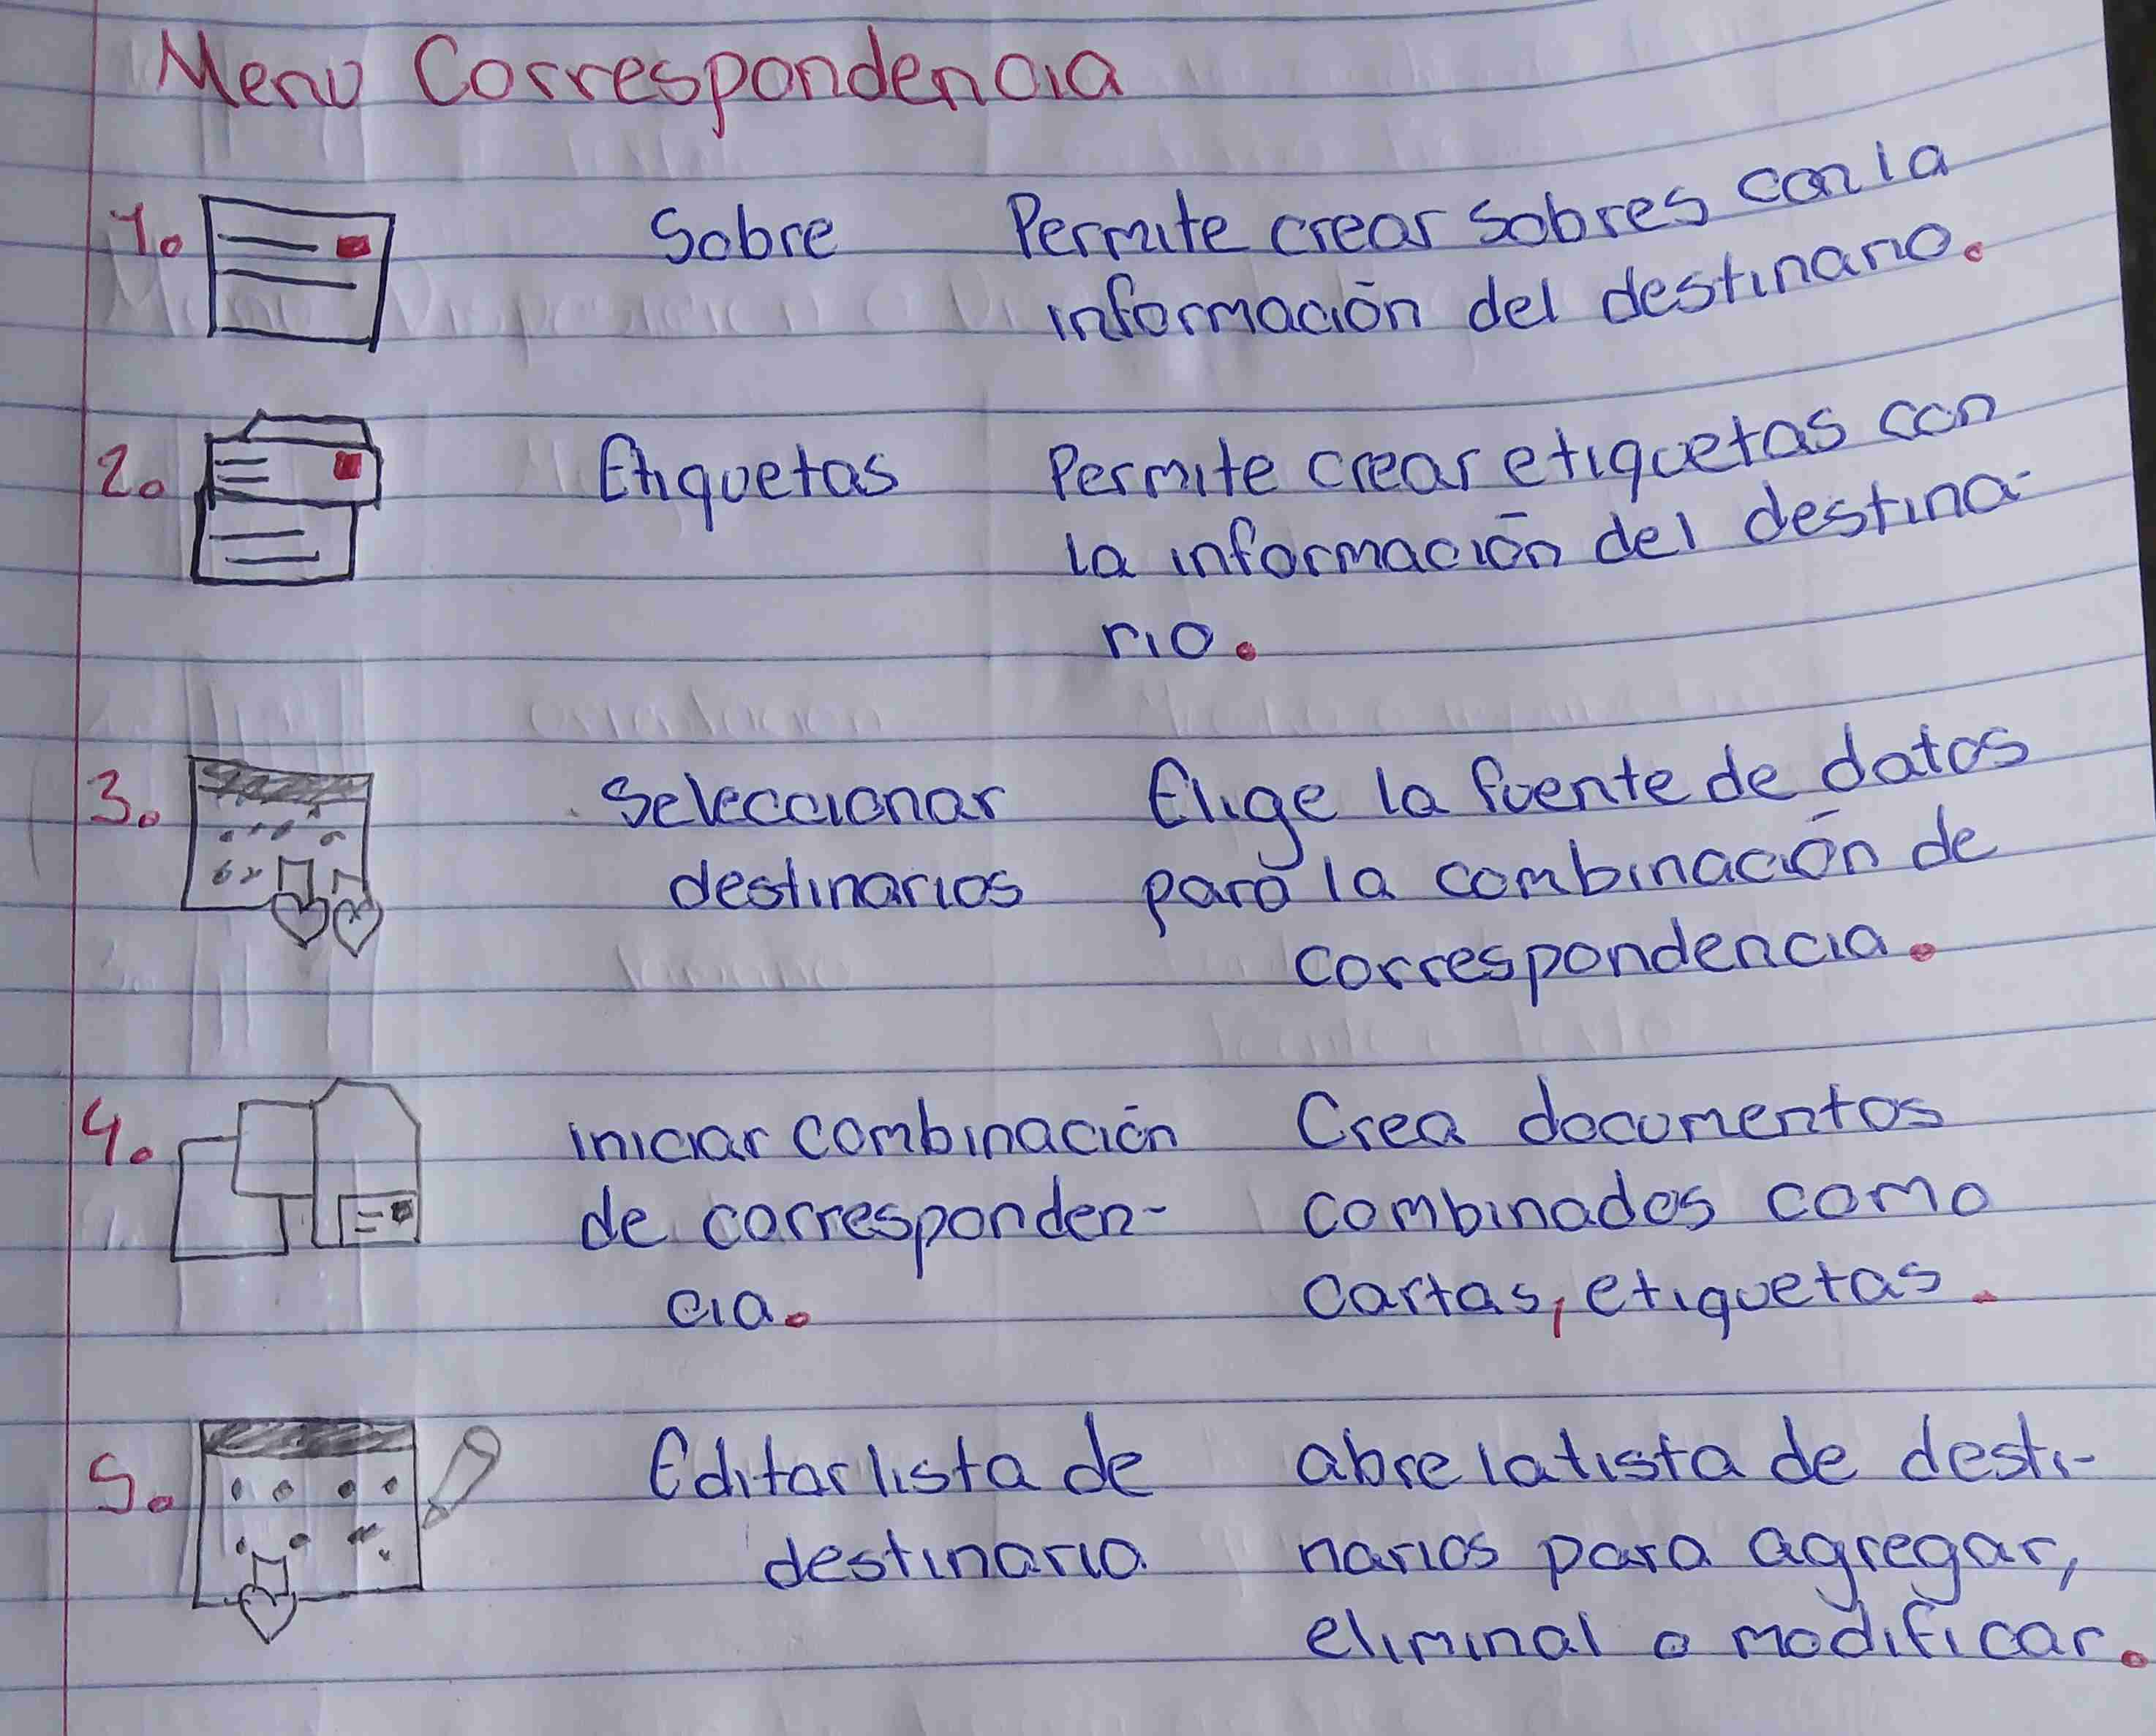 Menu Correspondencia
1. Sobre Permite crear sobres con la
información del destinario.
2. Etiquetas Permite crear etiquetas con
la información del destina-
rio.
3. Seleccionar Elige la fuente de datos
destinarios para la combinación de
correspondencia.
4. iniciar combinación Crea documentos
de corresponden- combinados como
cia. cartas, etiquetas.
5. Editar lista de abre la tista de desti-
destinario narios para agregar,
eliminal o modificar.